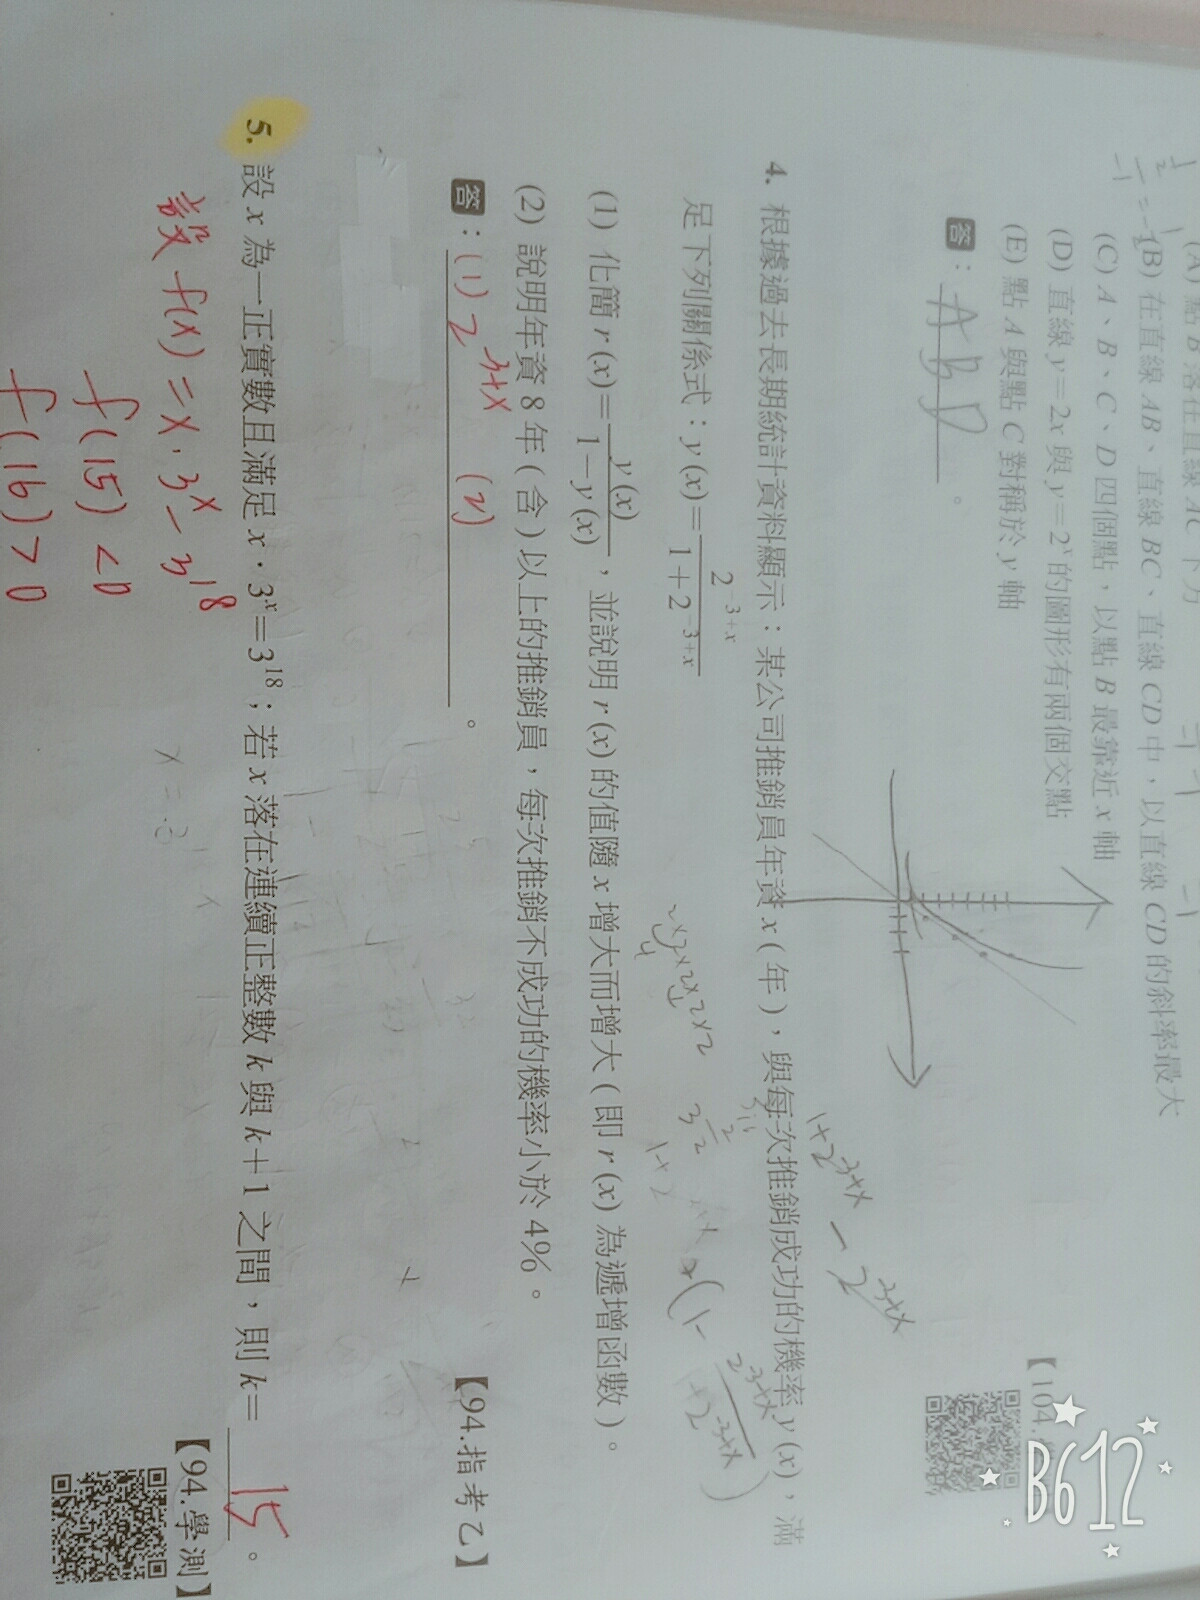 (B) 在直線 AB、直線 BC、直線 CD 中,以直線 CD 的斜率最大
(C) A、B、C、D 四個點,以點 B 最靠近 x 軸
(D) 直線 y=2x 與 y=2^x 的圖形有兩個交點
(E) 點 A 與點 C 對稱於 y 軸
答:ABD。
【104.
4. 根據過去長期統計資料顯示:某公司推銷員年資 x(年),與每次推銷成功的機率 y(x),滿
足下列關係式:y(x)=2^{-3+x}/(1+2^{-3+x})
(1) 化簡 r(x)=y(x)/(1-y(x)),並說明 r(x) 的值隨 x 增大而增大(即 r(x) 為遞增函數)。
(2) 說明年資 8 年(含)以上的推銷員,每次推銷不成功的機率小於 4%。
【94.指考乙】
答:(1) 2^{-3+x} (2)。
5. 設 x 為一正實數且滿足 x·3^x=3^{18};若 x 落在連續正整數 k 與 k+1 之間,則 k=15。
【94.學測】
設 f(x)=x·3^x-3^{18}
f(15)<0
f(16)>0
B612